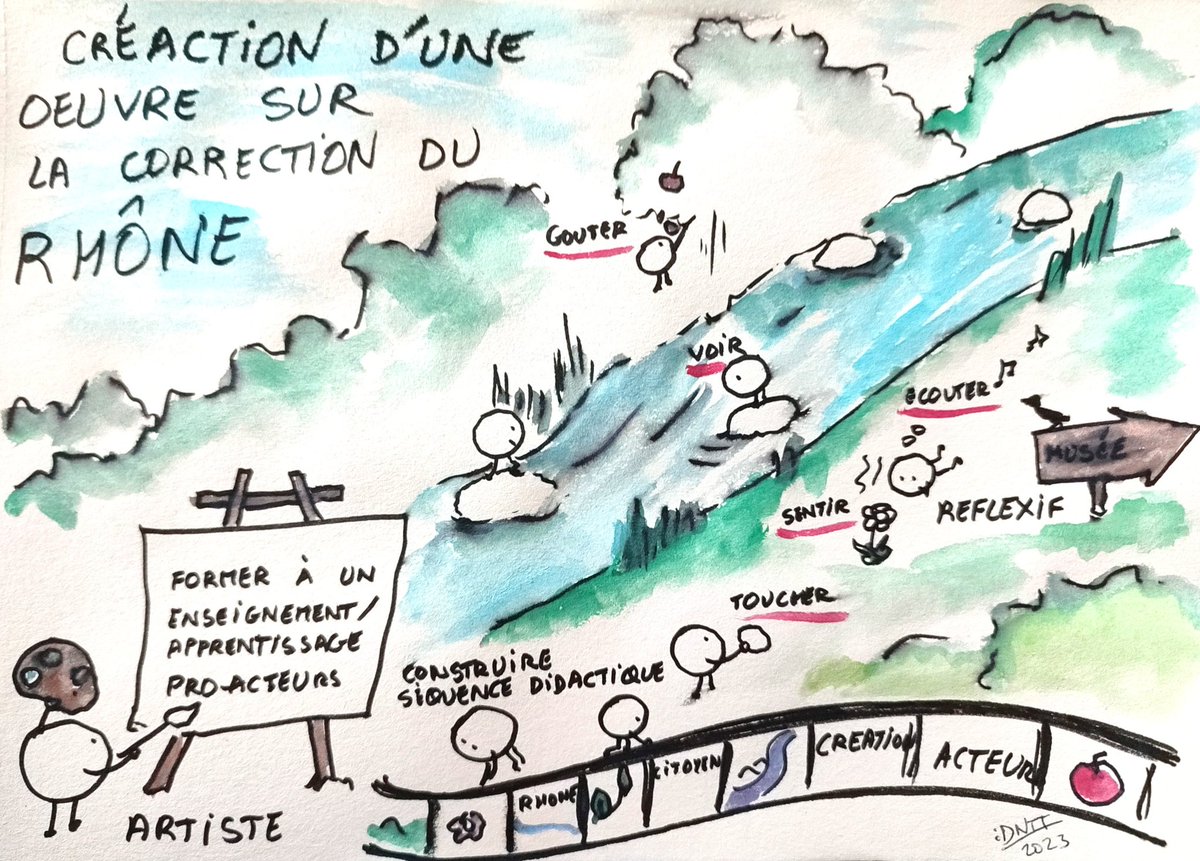 CRÉACTION D'UNE
OEUVRE SUR
LA CORRECTION DU
RHÔNE
GOUTER
VOIR
ECOUTER
MUSÉE
SENTIR
REFLEXIF
TOUCHER
FORMER À UN
ENSEIGNEMENT/
APPRENTISSAGE
PRO-ACTEURS
CONSTRUIRE
SÉQUENCE DIDACTIQUE
ARTISTE
RHONE
CITOYEN
CREATION
ACTEUR
iDNTT
2023